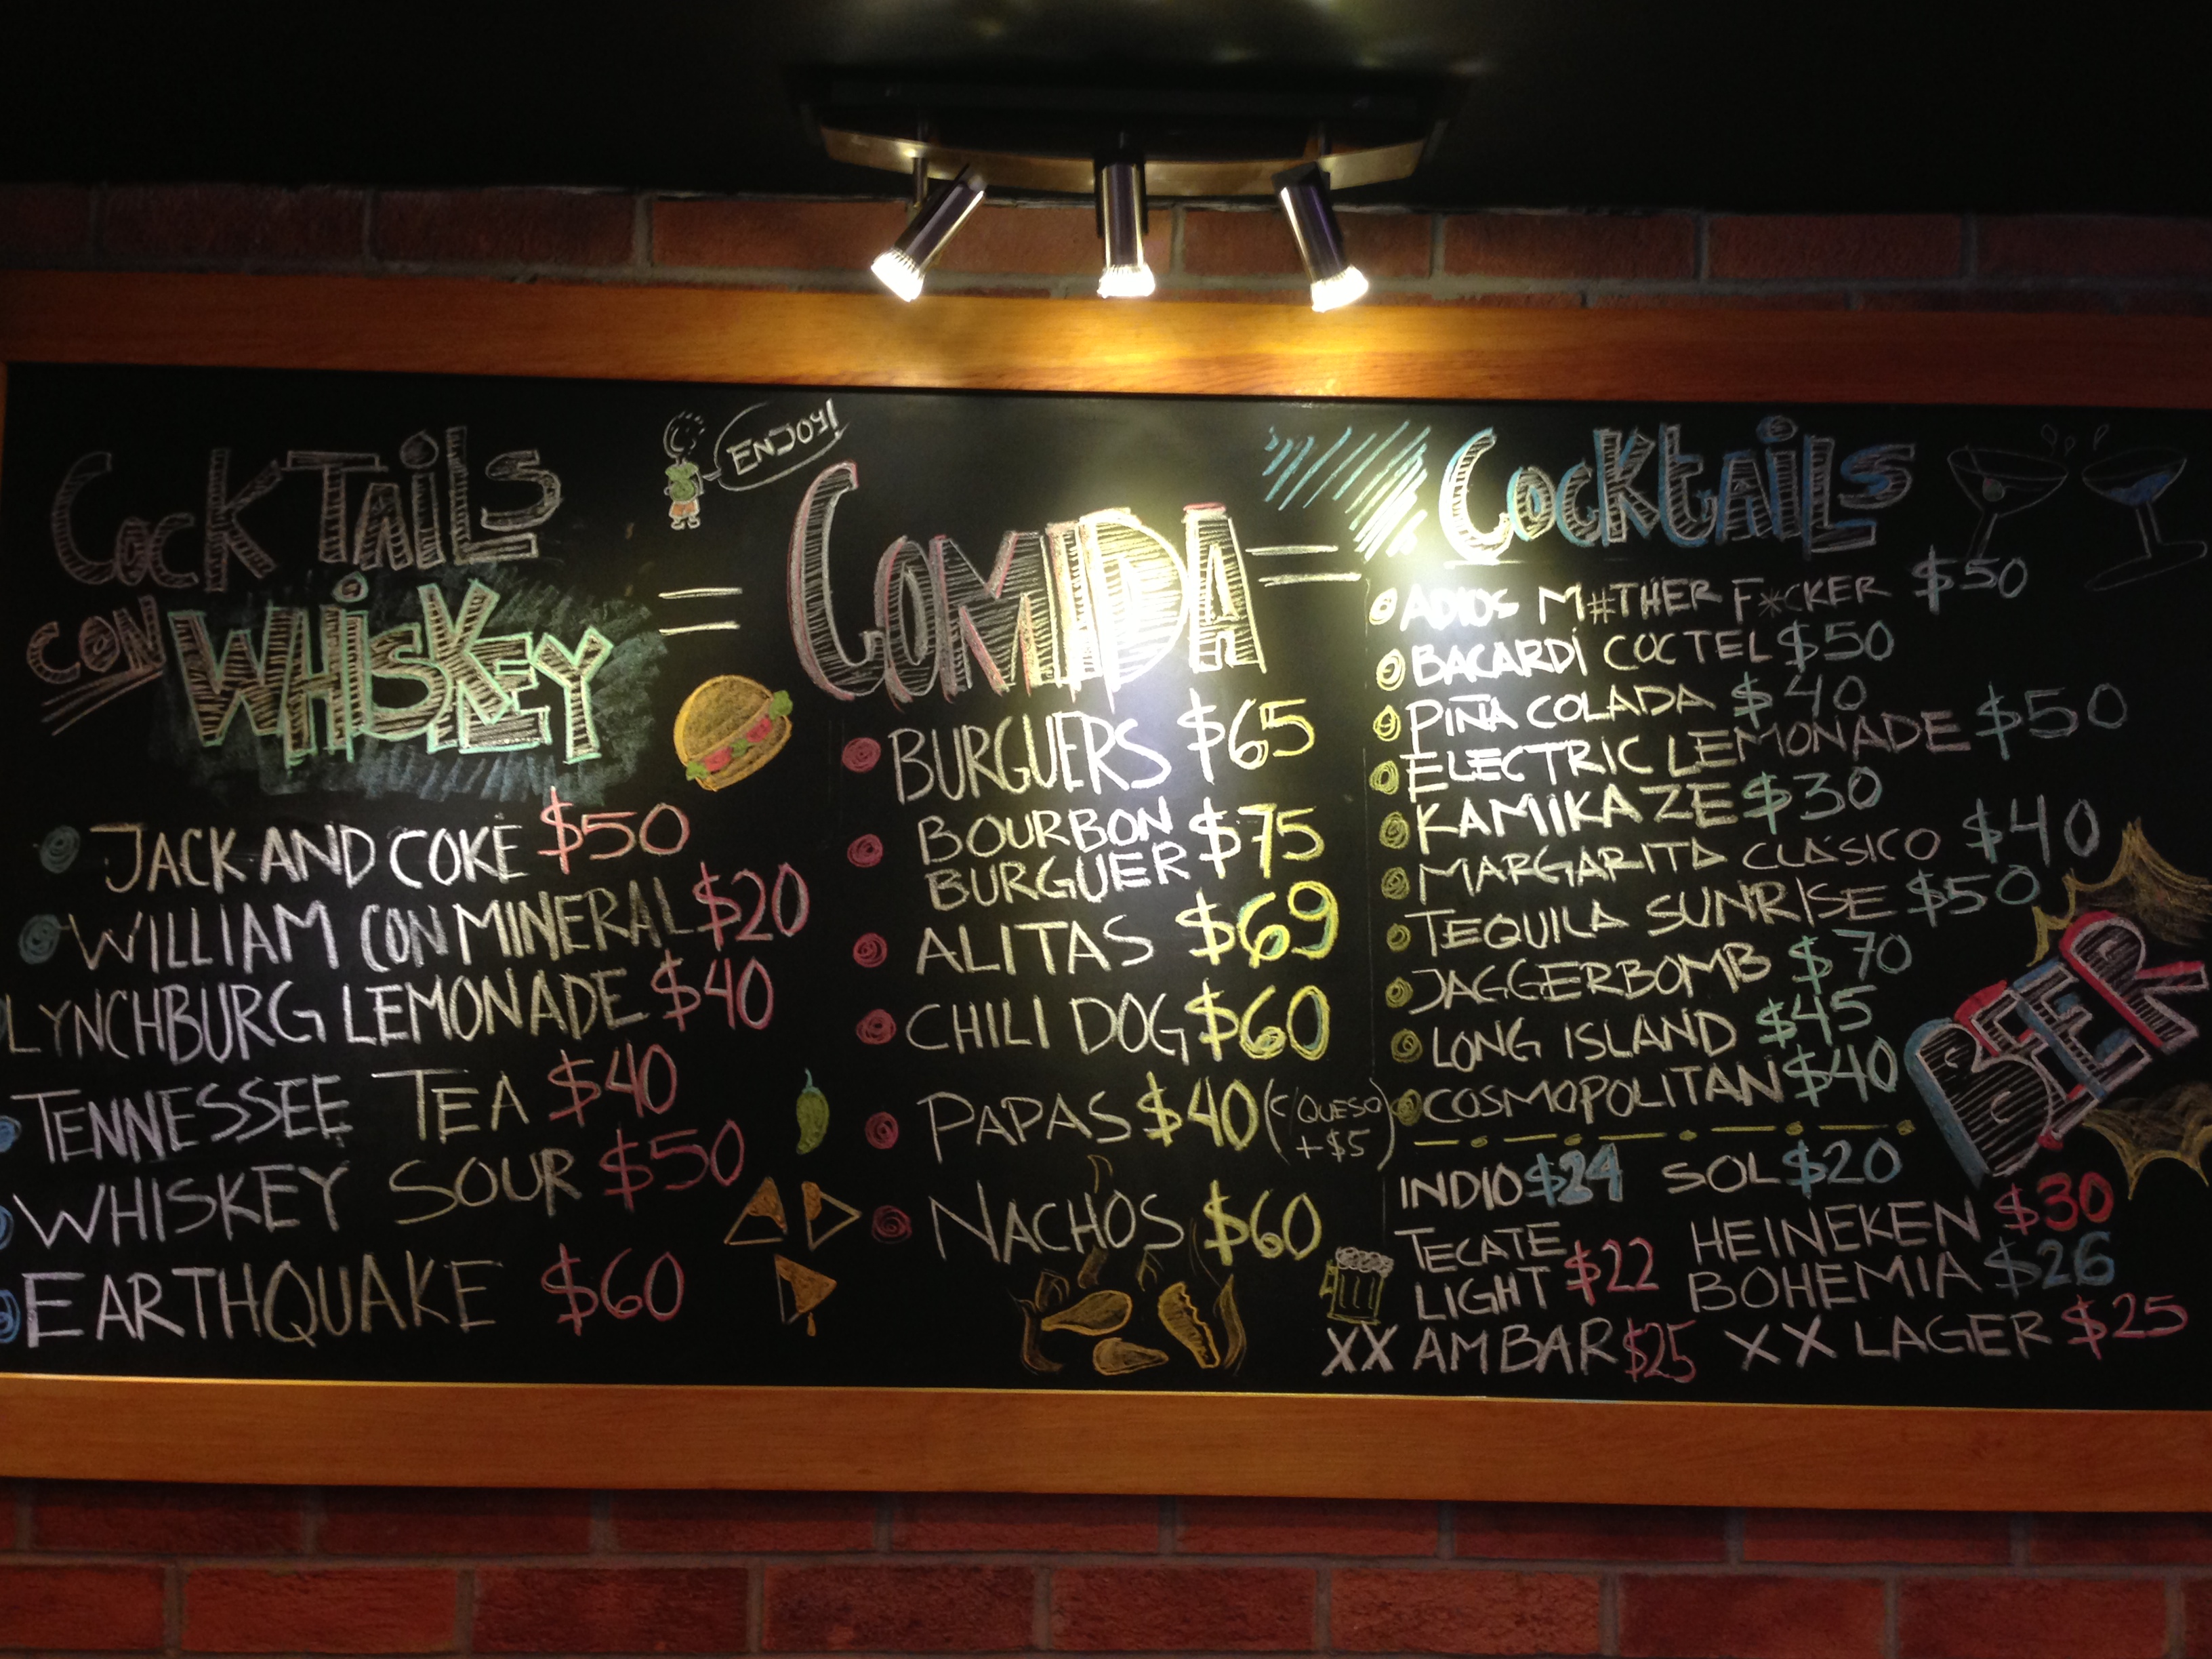 COCKTAILS
CON WHISKEY
JACK AND COKE $50
WILLIAM CON MINERAL $20
LYNCHBURG LEMONADE $40
TENNESSEE TEA $40
WHISKEY SOUR $50
EARTHQUAKE $60
ENJOY!
= COMIDA =
BURGUERS $65
BOURBON
BURGUER $75
ALITAS $69
CHILI DOG $60
PAPAS $40 (C/QUESO
+$5)
NACHOS $60
COCKTAILS
ADIOS M#THER F*CKER $50
BACARDÍ COCTEL $50
PIÑA COLADA $40
ELECTRIC LEMONADE $50
KAMIKAZE $30
MARGARITA CLASICO $40
TEQUILA SUNRISE $50
JAGGERBOMB $70
LONG ISLAND $45
COSMOPOLITAN $40
BEER
INDIO $24 SOL $20
TECATE
LIGHT $22
HEINEKEN $30
BOHEMIA $26
XX AMBAR $25 XX LAGER $25